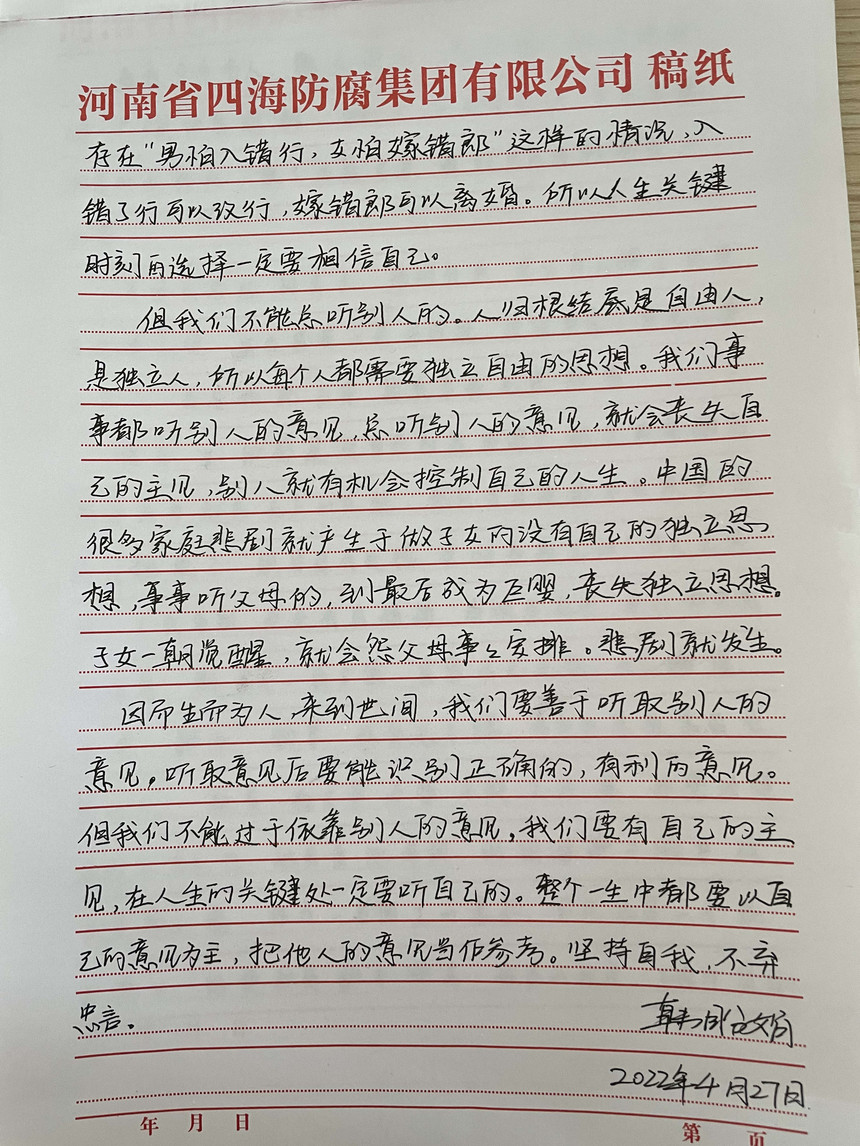 河南省四海防腐集团有限公司 稿纸
存在“男怕入错行，女怕嫁错郎”这样的情况，入
错了行可以改行，嫁错郎可以离婚。所以人生关键
时刻再选择一定要相信自己。
但我们不能总听别人的。人归根结底是自由人，
是独立人，所以每个人都需要独立自由的思想。我们事
事都听别人的意见，总听别人的意见，就会丧失自
己的主见，别人就有机会控制自己的人生。中国的
很多家庭悲剧就产生于做子女的没有自己的独立思
想，事事听父母的，到最后成为巨婴，丧失独立思想。
子女一朝觉醒，就会怨父母事々安排。悲剧就发生。
因而生而为人，来到世间，我们要善于听取别人的
意见。听取意见后要能识别正确的，有利的意见。
但我们不能过于依靠别人的意见。我们要有自己的主
见，在人生的关键处一定要听自己的。整个一生中都要以自
己的意见为主，把他人的意见当作参考。坚持自我，不弃
忠言。
2022年4月27日
年 月 日
第 页